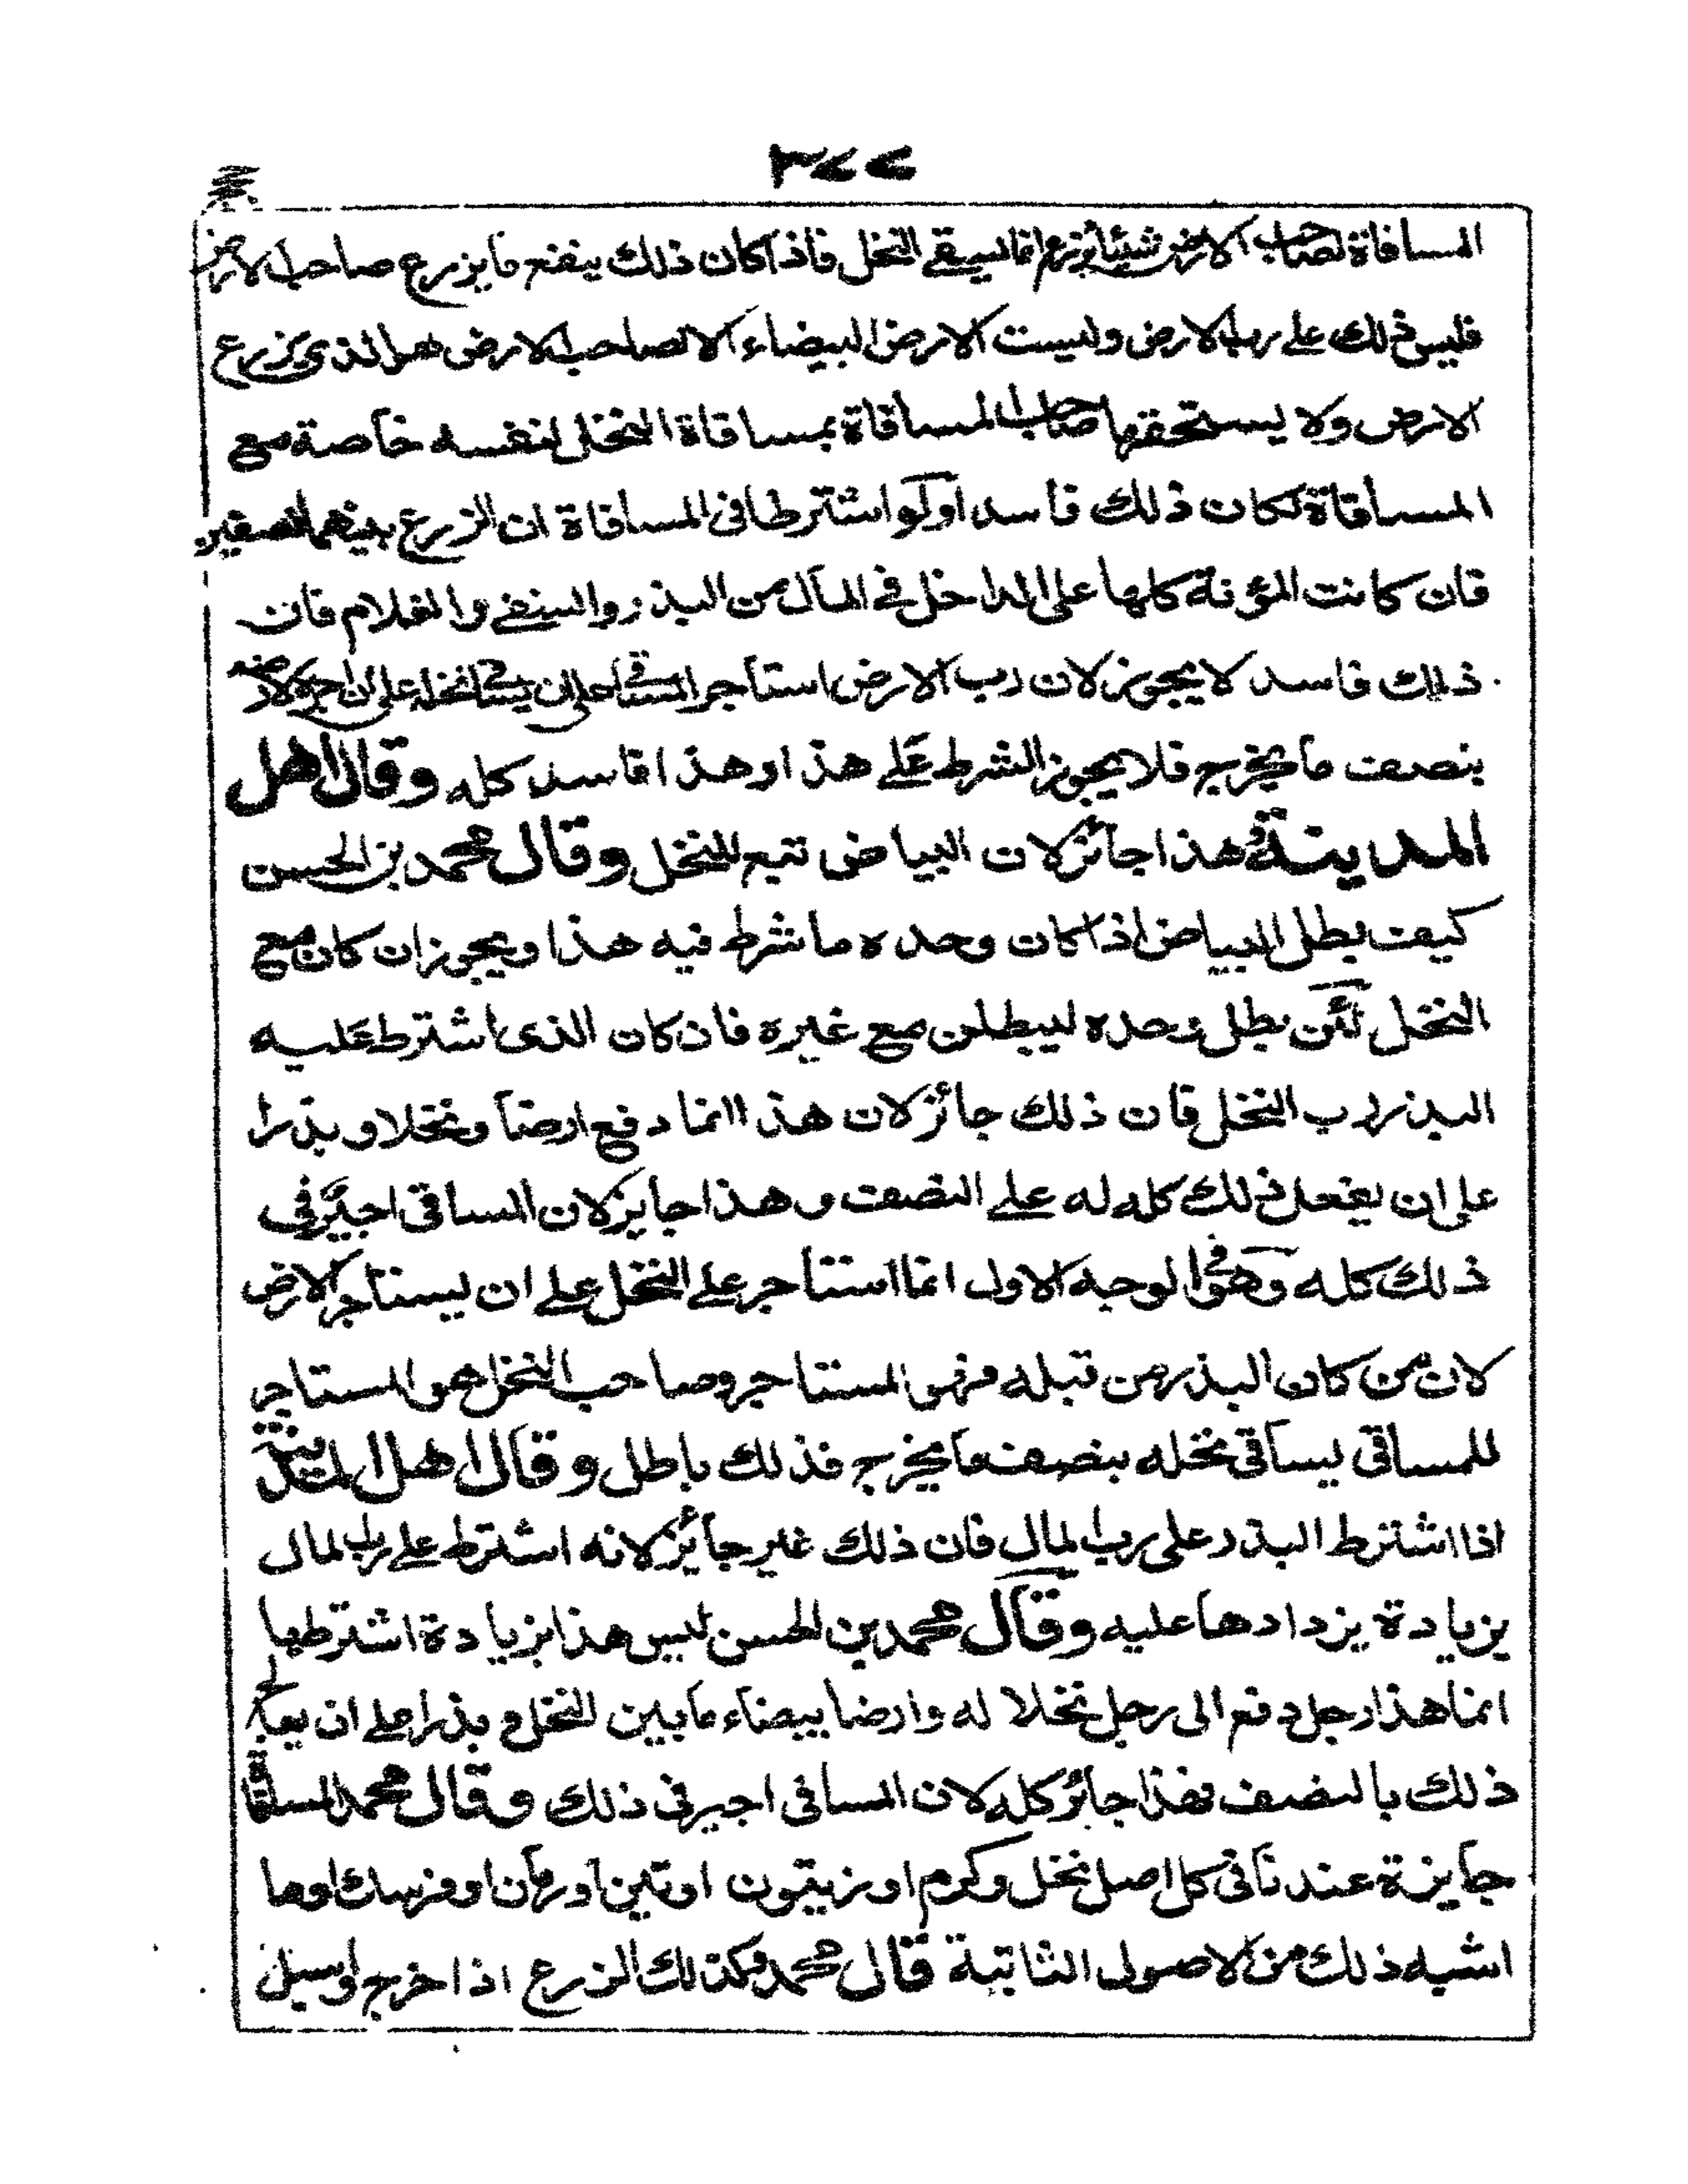 ٣٧٧
المساقاة لصاحب الارض شيئا يزرع انما يسقي النخل فاذا كان ذلك ينفع ما يزرع صاحب الارض
فليس ذلك على رب الارض وليست الارض البيضاء الا لصاحب الارض هو الذي يزرع
الارض ولا يستحقها صاحب المساقاة بمساقاة النخل لنفسه خاصة مع
المساقاة لكان ذلك فاسدا ولو اشترطا في المساقاة ان الزرع بينهما نصفين
فان كانت المؤنة كلها على الداخل في المال من البذر والسقي والغلام فان
ذلك فاسد لا يجوز لان رب الارض استأجر المساقي على ان يسقي نخله على ان اجره لارضه
بنصف ما يخرج فلا يجوز الشرط على هذا وهذا فاسد كله وقال اهل
المدينة في هذا جائز لان البياض تتبع للنخل وقال محمد بن الحسن
كيف بطل البياض اذا كان وحده ما شرط فيه هذا ويجوز ان كان مع
النخل لئن بطل وحده ليبطلن مع غيره فان كان الذى اشترط عليه
البذر لرب النخل فان ذلك جائز لان هذا انما دفع ارضا ونخلا وبذرا
على ان يفعل ذلك كله له على النصف وهذا جايز لان المساقى اجير في
ذلك كله وهو في الوجه الاول انما استأجر على النخل على ان يستأجر الارض
لان من كان البذر من قبله فهو المستاجر وصاحب النخل هو المستاجر
للمساقى يساقى نخله بنصف ما يخرج فذلك باطل وقال اهل المدينة
اذا اشترط البذر على رب المال فان ذلك غير جائز لانه اشترط على رب المال
بزيادة يزدادها عليه وقال محمد بن الحسن ليس هذا بزيادة اشترطها
انما هذا رجل دفع الى رجل نخلا له وارضا بيضاء ما بين النخل وبذرا على ان يعالج
ذلك بالنصف فهذا جائز كله لان المساقى اجير في ذلك وقال محمد المساقاة
جايزة عندنا في كل اصل نخل وكرم او زيتون او تين او رمان او فرسك او ما
اشبه ذلك من الاصول الثابتة قال محمد وكذلك الزرع اذا خرج وسبل